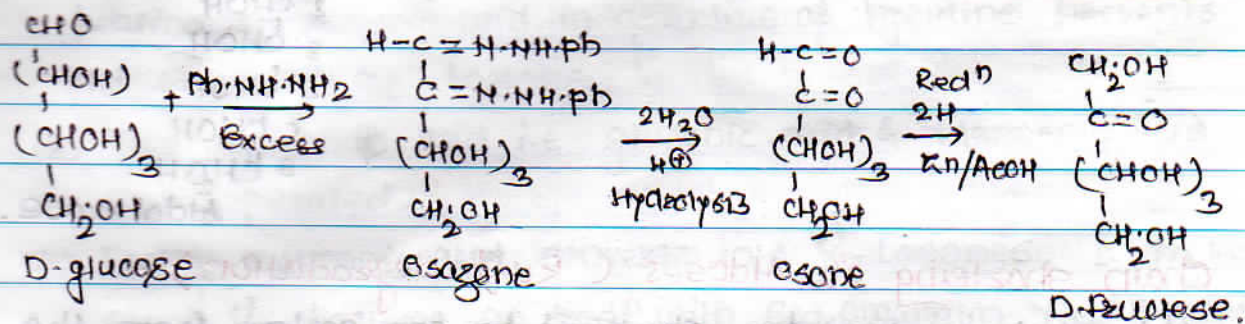 CHO
(CHOH) + Ph·NH·NH2 Excess
(CHOH)3
CH2·OH
D-glucose
H-C=N·NH·Ph
C=N·NH·Ph
(CHOH)3
CH2·OH
osazone
2H2O
H⊕
Hydrolysis
H-C=O
C=O
(CHOH)3
CH2OH
osone
Redn
2H
Zn/AcOH
CH2·OH
C=O
(CHOH)3
CH2·OH
D-fructose.